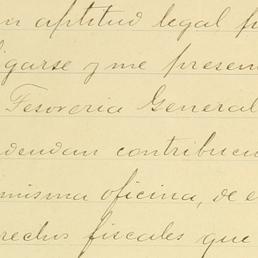 n aptitud legal p
igarse y me presen
Tesoreria General
dendan contribucion
misma oficina, de e
rechos fiscales que